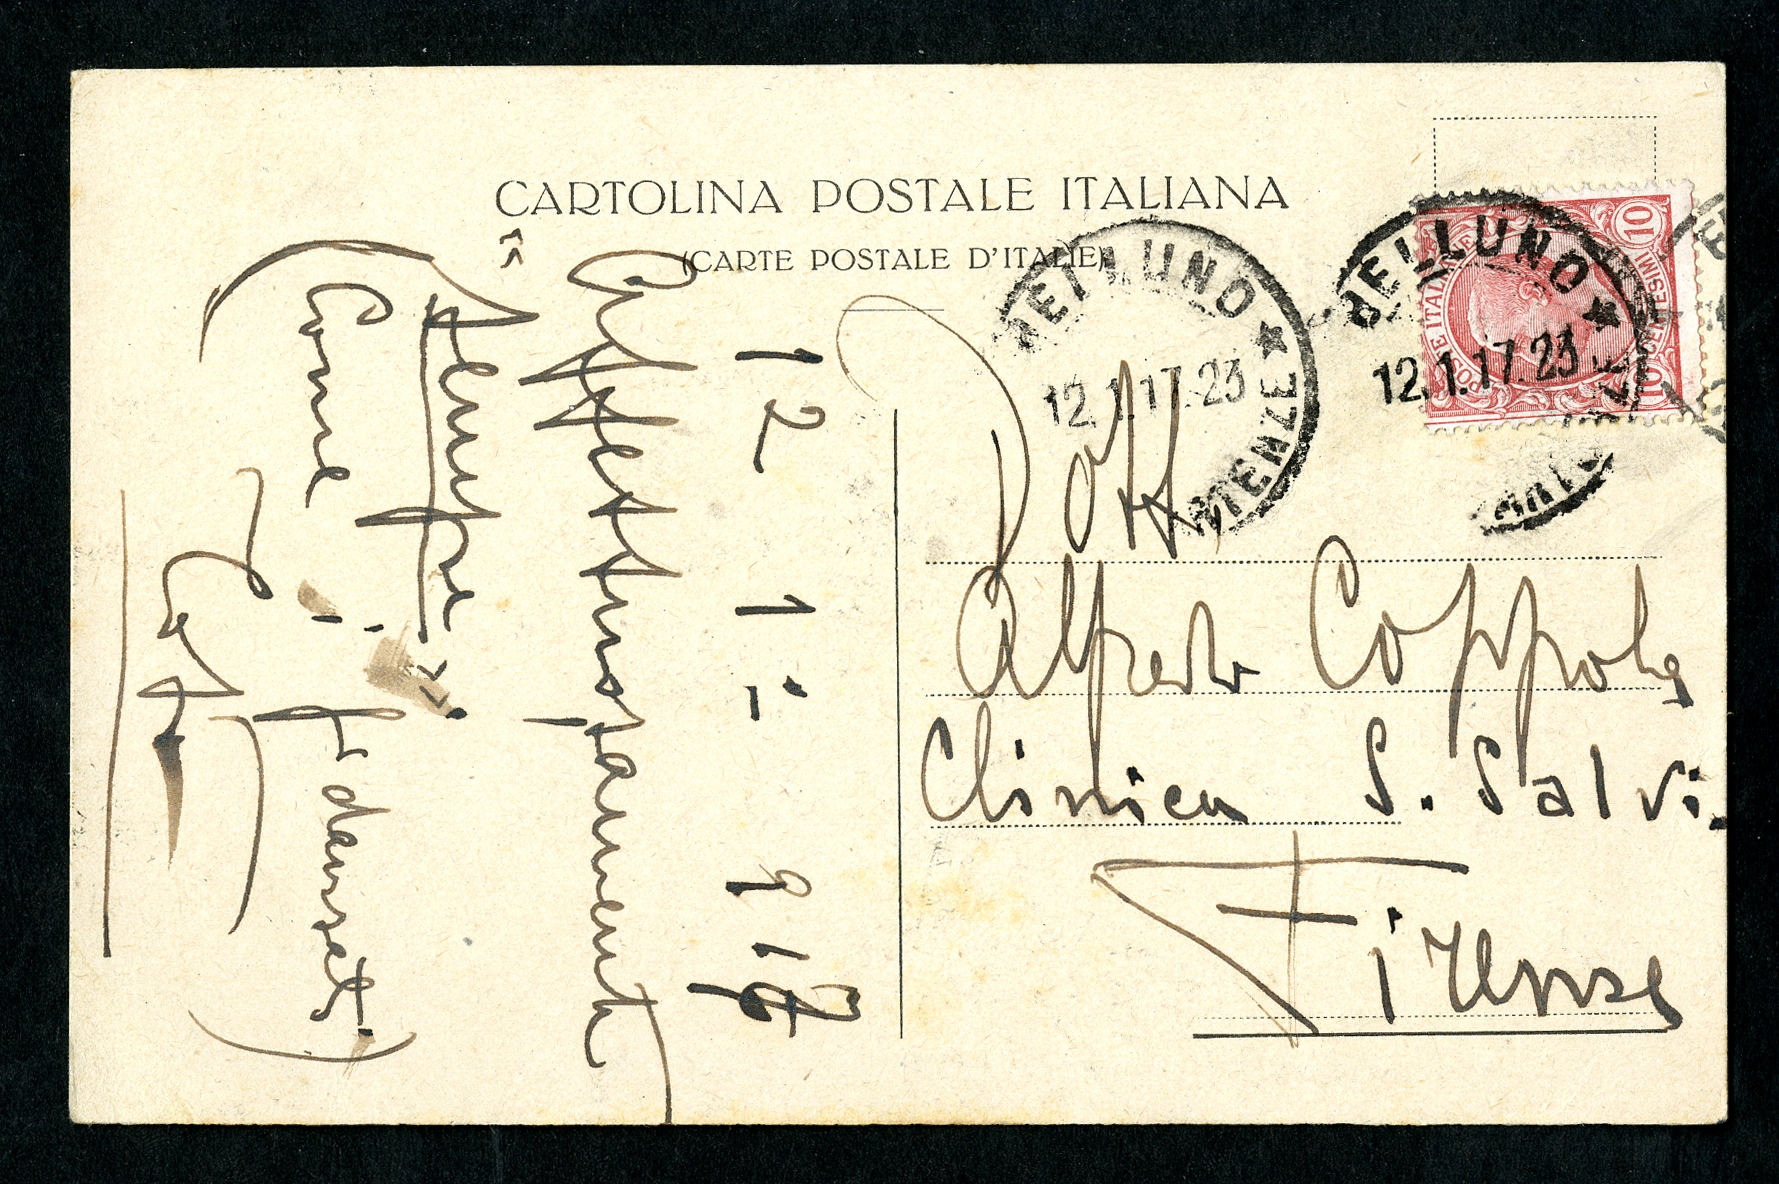 CARTOLINA POSTALE ITALIANA
(CARTE POSTALE D'ITALIE)
BELLUNO
12.1.17.23
BELLUNO
12.1.17.23
POSTE ITALIANE
10
CENTESIMI
10
Dott
Alfredo Coppola
Clinica S. Salvi.
Firenze
12 1- 917
Affettuosamente
"Sempre"
(Come i fidanzati)